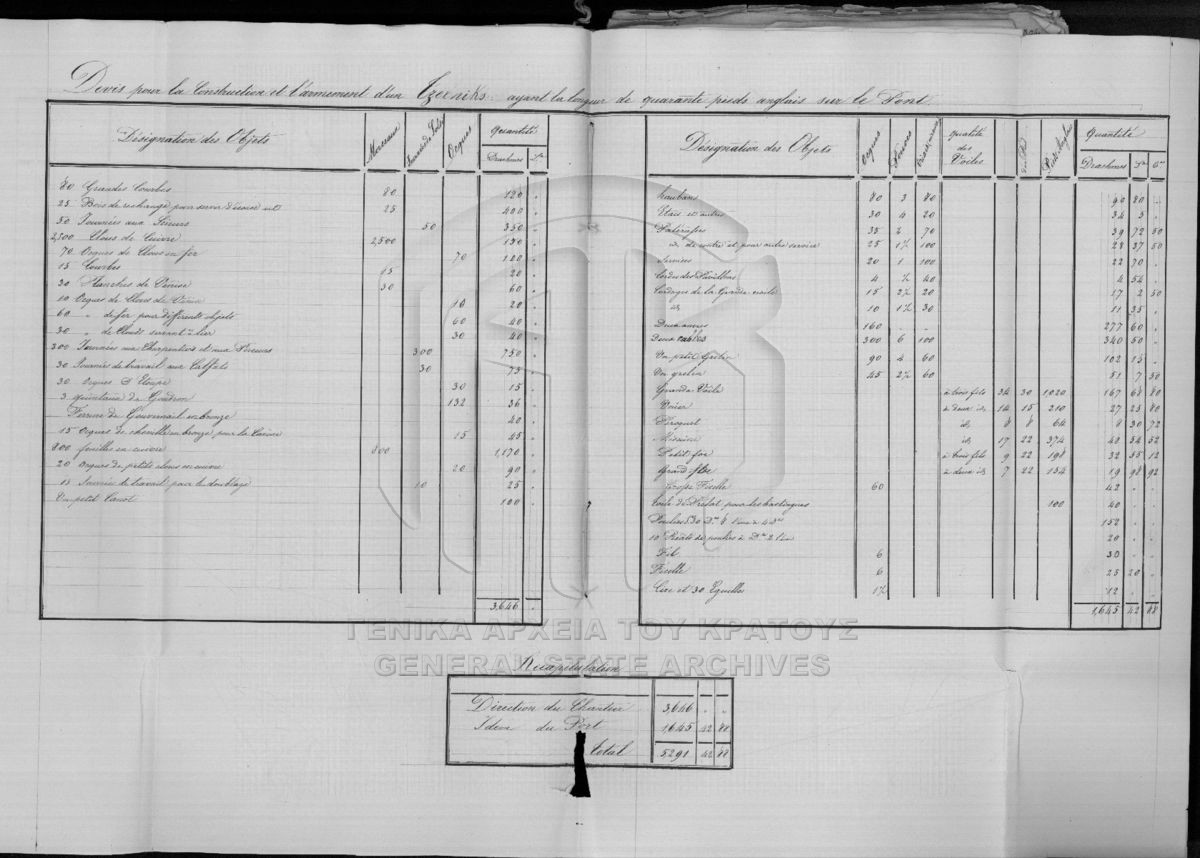 Devis pour la Construction et l'armement d'un Tzerniks ayant la longueur de quarante pieds anglais sur le Pont
Désignation des Objets Morceaux Journées de Ocques Quantité
Drachmes
80 Grandes Courbes 80 120 "
25 Bois de rechange pour servir 25 400 "
50 Journées aux Scieurs 50 350 "
2,500 Clous de Cuivre 2,500 150 "
70 Ocques de Clous en fer 70 120 "
15 Courbes 15 20 "
30 Planches de Venise 30 60 "
10 Ocques de Clous de 10 20 "
60 " de fer pour différents objets 60 40 "
30 " de Clouds servant à lier 30 40 "
300 Journées aux Charpentiers et aux Scieurs 300 750 "
30 Journées de travail aux Calfats 30 75 "
30 Ocques d'Etoupe 30 15 "
3 quintaux de Goudron 132 36 "
Ferrure de Gouvernail en bronze 40 "
15 Ocques de cheville en bronze pour la Carène 15 45 "
800 feuilles en cuivre 800 1,170 "
20 Ocques de petits clous en cuivre 20 90 "
15 Journées de travail pour le doublage 10 25 "
Un petit Canot 100 "
3,646 "
Désignation des Objets Ocques Qualité des Voiles Pieds Anglais Quantité
Drachmes
Haubans 80 3 80 90 80 "
Etais et autres 30 4 20 34 5 "
Galaubans 35 2 70 39 72 50
id. de voutre et pour autre service 25 1½ 100 28 37 50
20 1 100 22 70 "
Cordes des Pavillons 4 ½ 40 4 54 "
Cordages de la Grande voile 15 2½ 20 17 2 50
id 10 1½ 30 11 35 "
Deux ancres 160 " " 277 60 "
Deux cables 300 6 100 340 50 "
Un petit Grelin 90 4 60 102 15 "
Un grelin 45 2½ 60 51 7 50
Grande Voile à trois fils 34 30 1,020 167 68 80
Hunier à deux id. 14 15 210 27 25 80
Peroquet id 8 8 64 8 30 72
Missaine id 17 22 374 40 54 52
Petit foc à trois fils 9 22 198 32 55 12
Grand foc à deux id 7 22 154 19 98 92
Grosse Ficelle 60 42 " "
Toile de pour les bastingues 100 40 "
Poulies 152 "
10 de poulies à Dr. 2 l'un 20 " "
Fil 6 30 " "
Ficelle 6 25 20 "
Cire et 30 Eguilles 1½ 12 " "
1,645 42 88
ΓΕΝΙΚΑ ΑΡΧΕΙΑ ΤΟΥ ΚΡΑΤΟΥΣ
GENERAL STATE ARCHIVES
Recapitulation
Direction du Chantier 3,646 " "
Idem du Port 1,645 42 88
total 5291 42 88